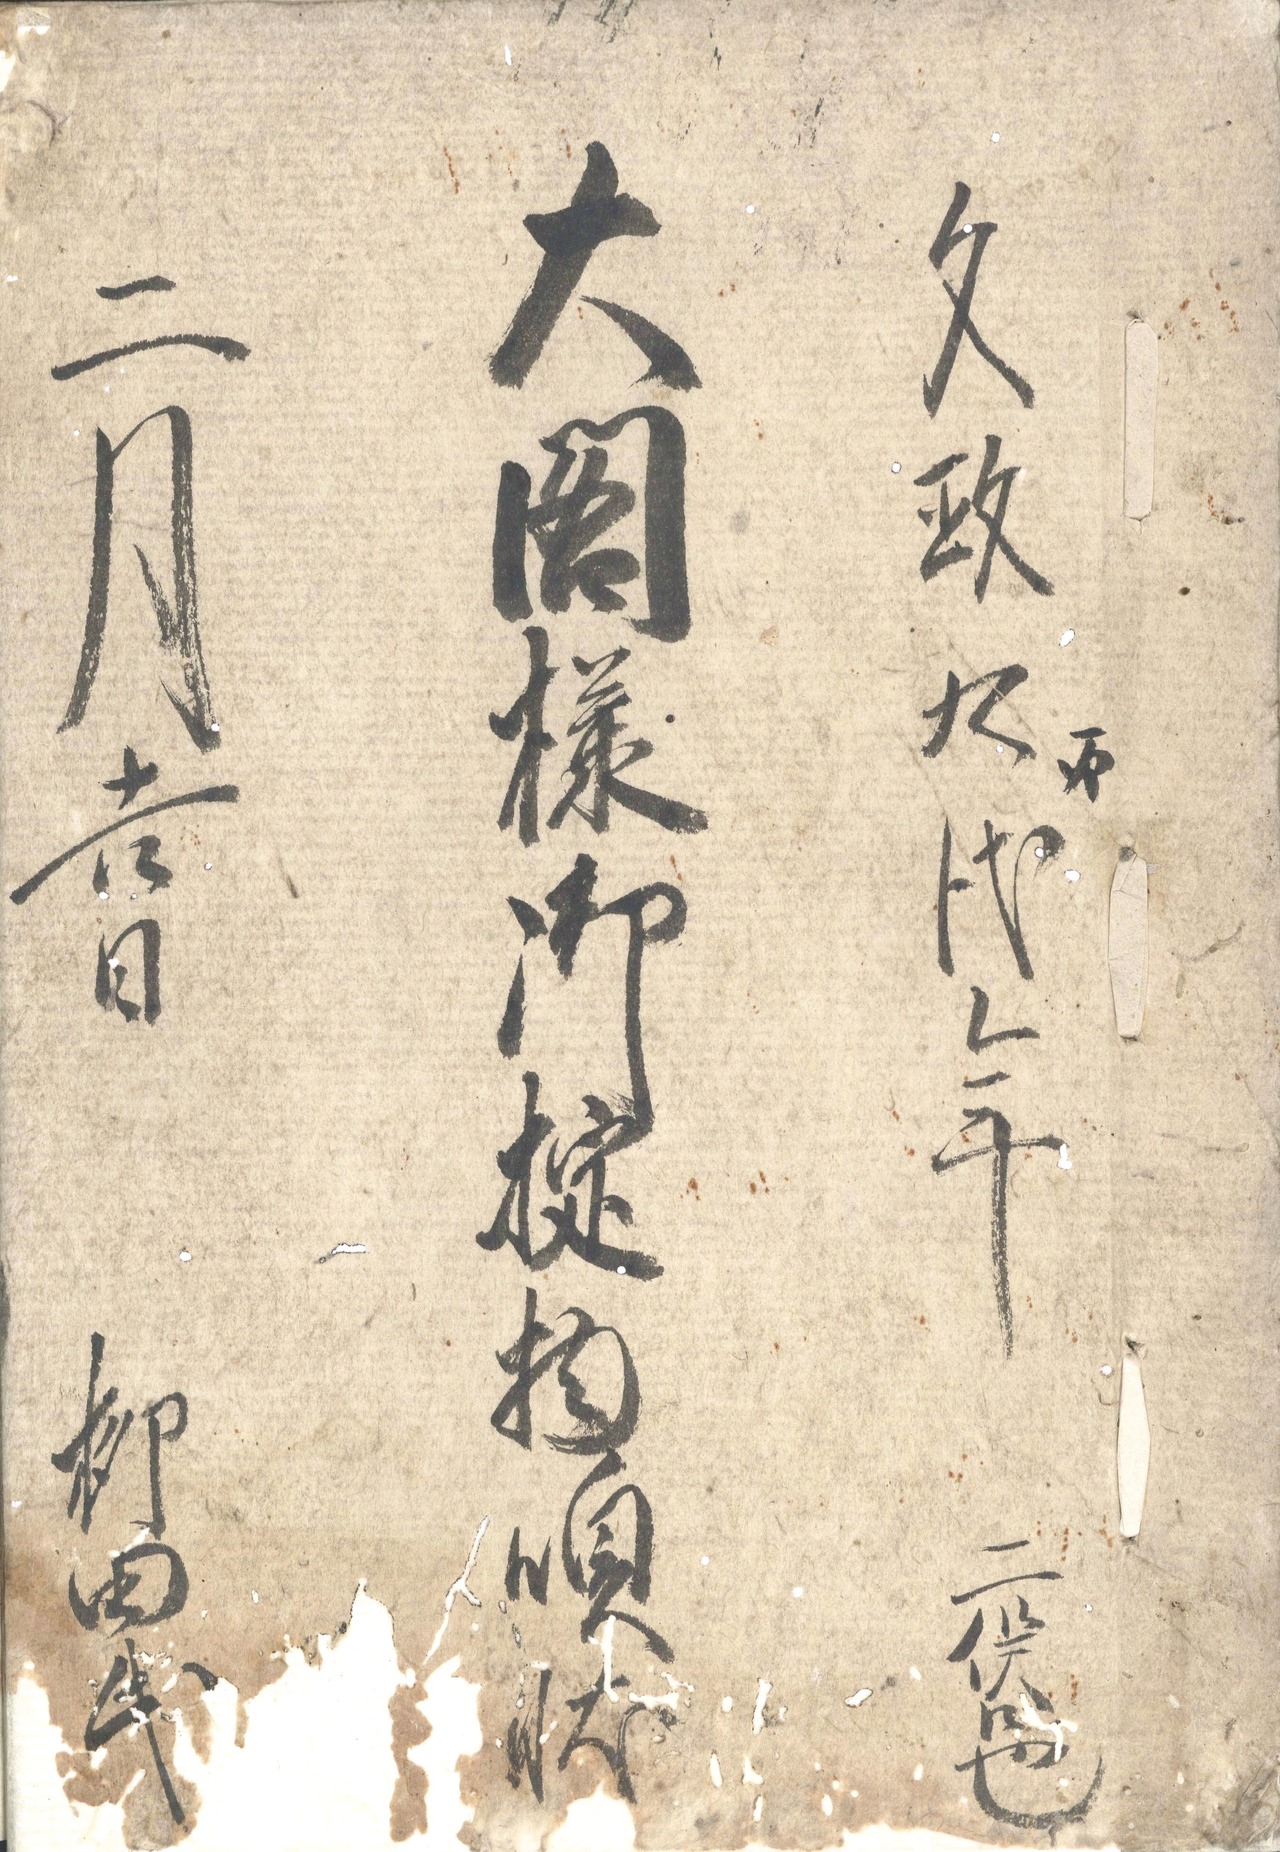 文政九丙戌之年
二俣邑
大閤様御掟状
二月吉日
柳田氏